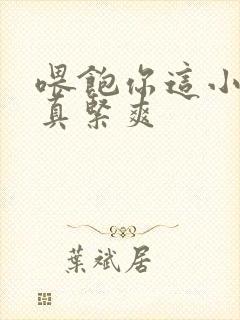 喂飽你這小
真緊爽
葉斌居